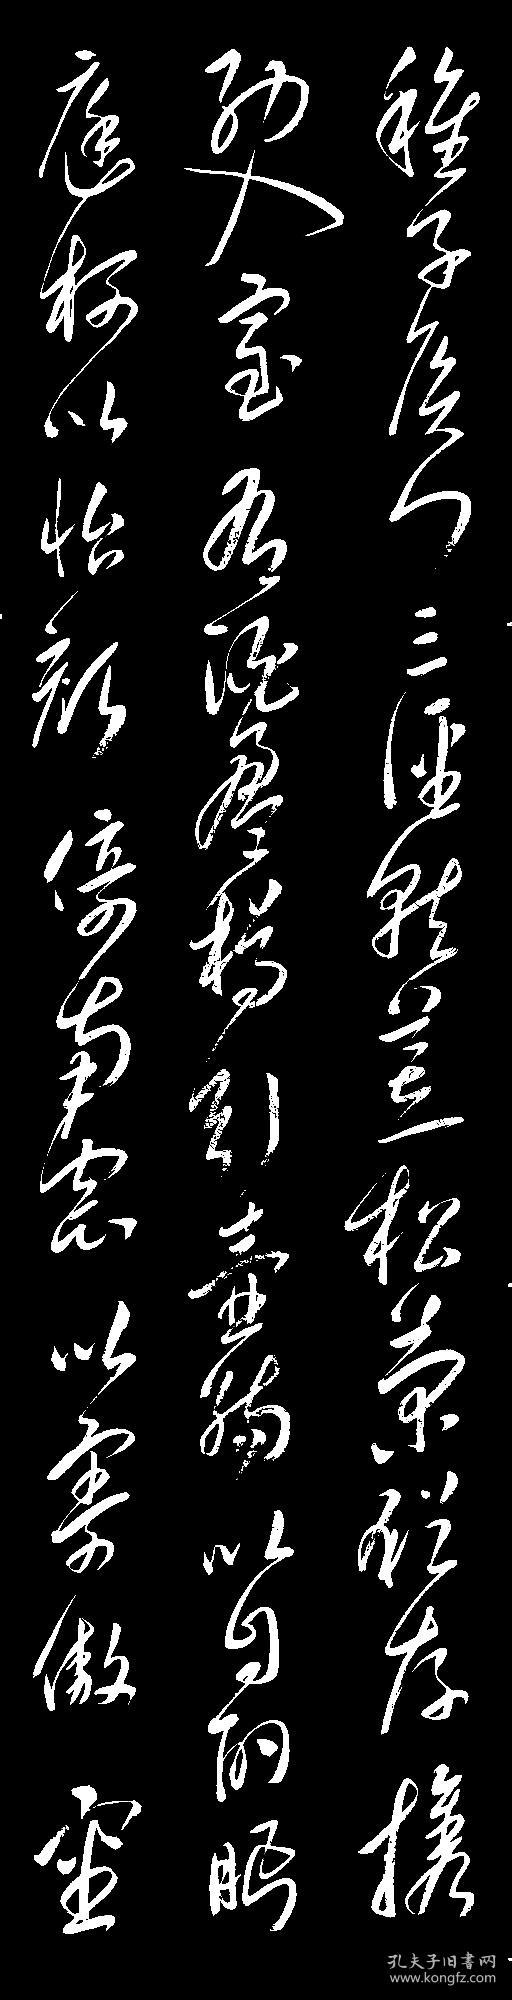 稚子候门三径就荒松菊犹存携
幼入室有酒盈樽引壶觞以自酌眄
庭柯以怡颜倚南窗以寄傲审
孔夫子旧书网
www.kongfz.com